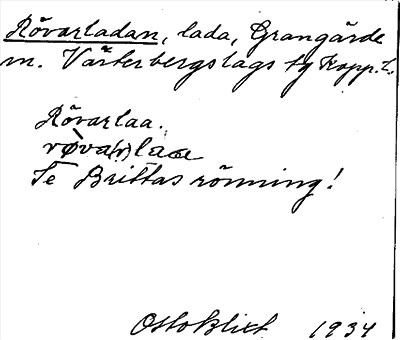 Rövarladan, lada, Grangärde
sn. Västerbergslags tg Kopp. L.
Rövarlaa.
røva(r)laa
Se Brittas rönning!
Otto Blixt 1934